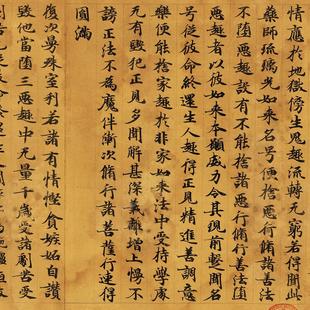 情應於地獄傍生鬼趣流轉无窮若得聞此
藥師琉璃光如來名号便捨惡行脩諸善法
不墮惡趣設有不能捨諸惡行脩行善法墮
惡趣者以彼如來本願威力令其現前暫聞名
号從彼命終還生人趣得正見精進善調意
樂便能捨家趣於非家如來法中受持學處
无有毀犯正見多聞解甚深義離增上慢不
謗正法不為魔伴漸次脩行諸菩薩行速得
圓滿
復次曼殊室利若諸有情慳貪嫉妬自讚
毀他當墮三惡趣中无量千歲受諸劇苦受